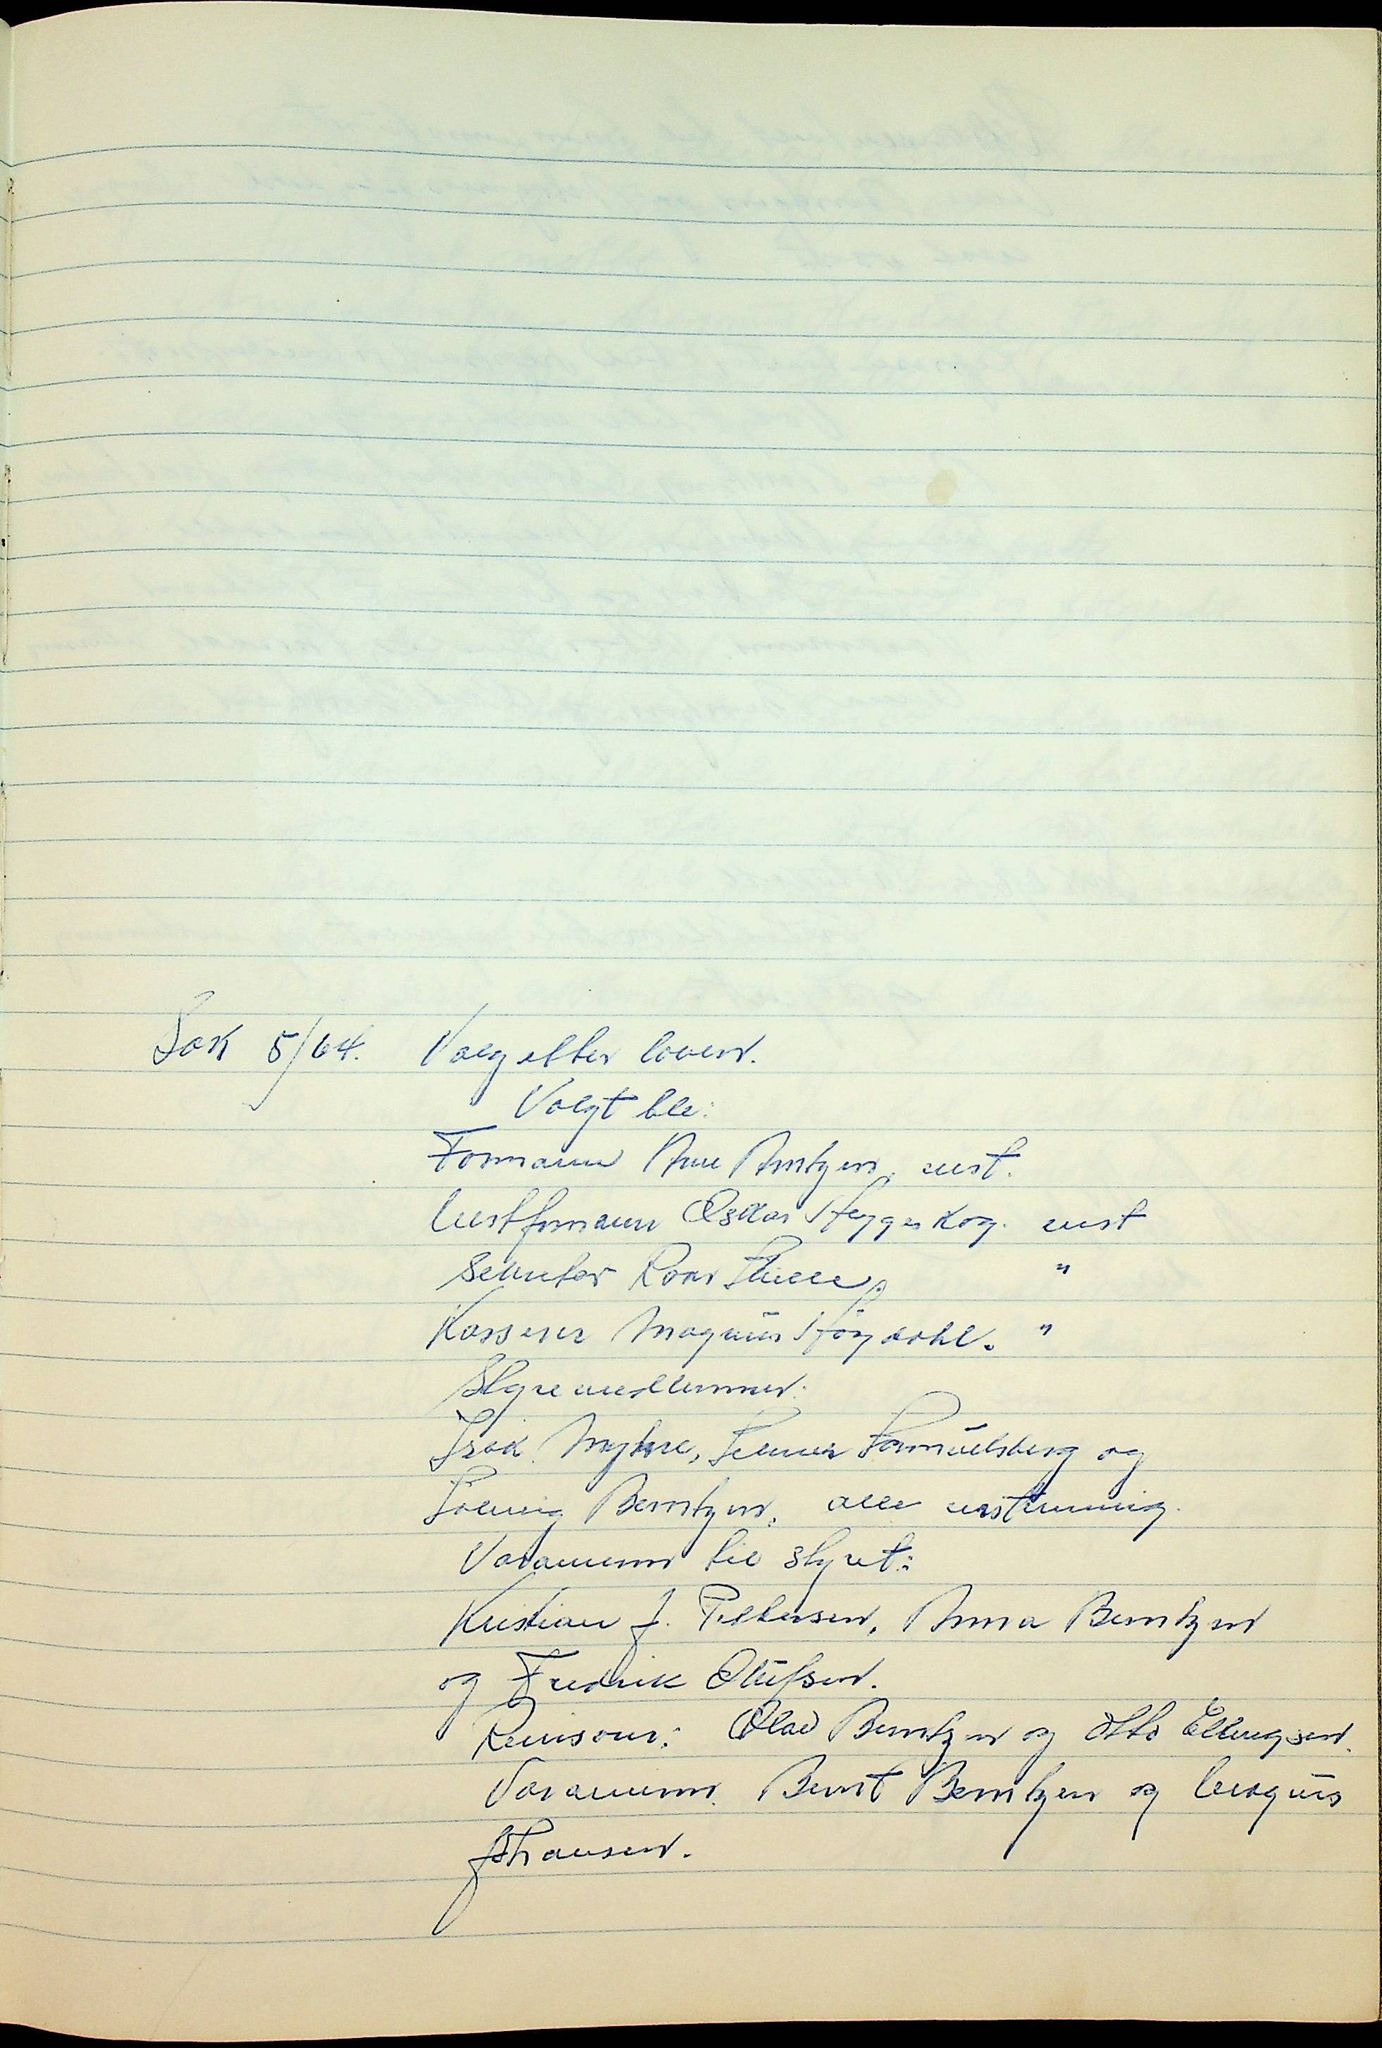 Sak 5/64. Valg etter loven.
Valgt ble:
Formann Arne Arntzen, enst.
Nestformann Oskar Heggeskog. enst
Sekretær Roar "
Kasserer Magnus Høgdahl. "
Styremedlemmer:
Isak Myhre, Samuelsberg og
Solveig Berntzen, alle enstemmig.
Varamenn til styret:
Kristian J. Pettersen, Anna Berntzen
og Fredrik Olufsen.
Revisorer: Olav Berntzen og Otto Ellingsen.
Varamenn. Bernt Berntzen og Magnus
Johansen.